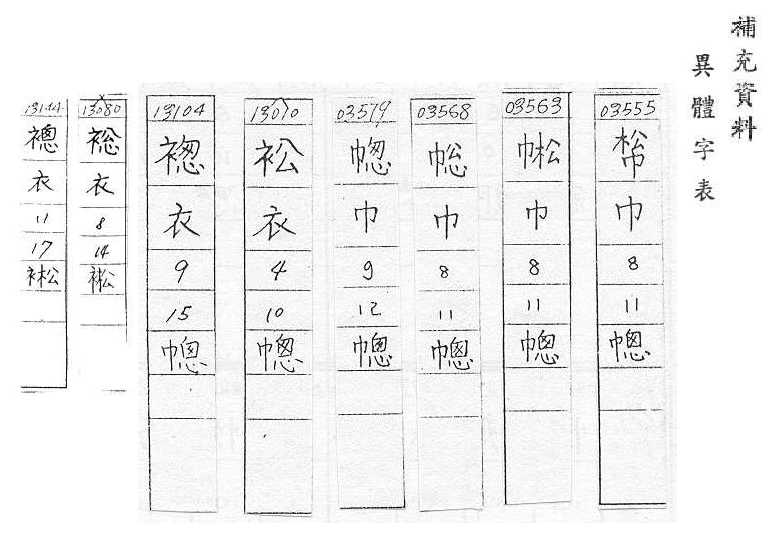 補充資料
異體字表
03555
巾
8
11
幒
03563
巾
8
11
幒
03568
巾
8
11
幒
03579
巾
9
12
幒
13010
衳
衣
4
10
幒
13104
衣
9
15
幒
13080
衣
8
14
13144
衣
11
17